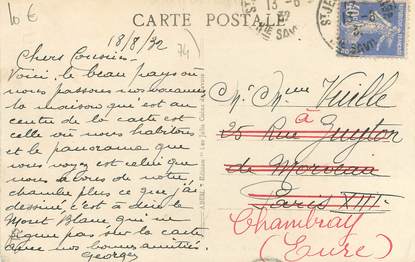 10 €
18/8/32
74
CARTE POSTALE
Chers Cousins
Voici le beau pays où
nous passons nos vacances
la maison qui est au
centre de la carte est
celle où nous habitons
et le panorama que
vous voyez est celui que
nous avons de notre
chambre plus ce que j'ai
dessiné c'est à dire le
Mont Blanc qui ne
figure pas sur la carte
avec nos bonnes amitiés
Georges
Mr Mme Vuille
à
25 Rue Guyton
de Morveau
Paris XIII
Chambray
(Eure)